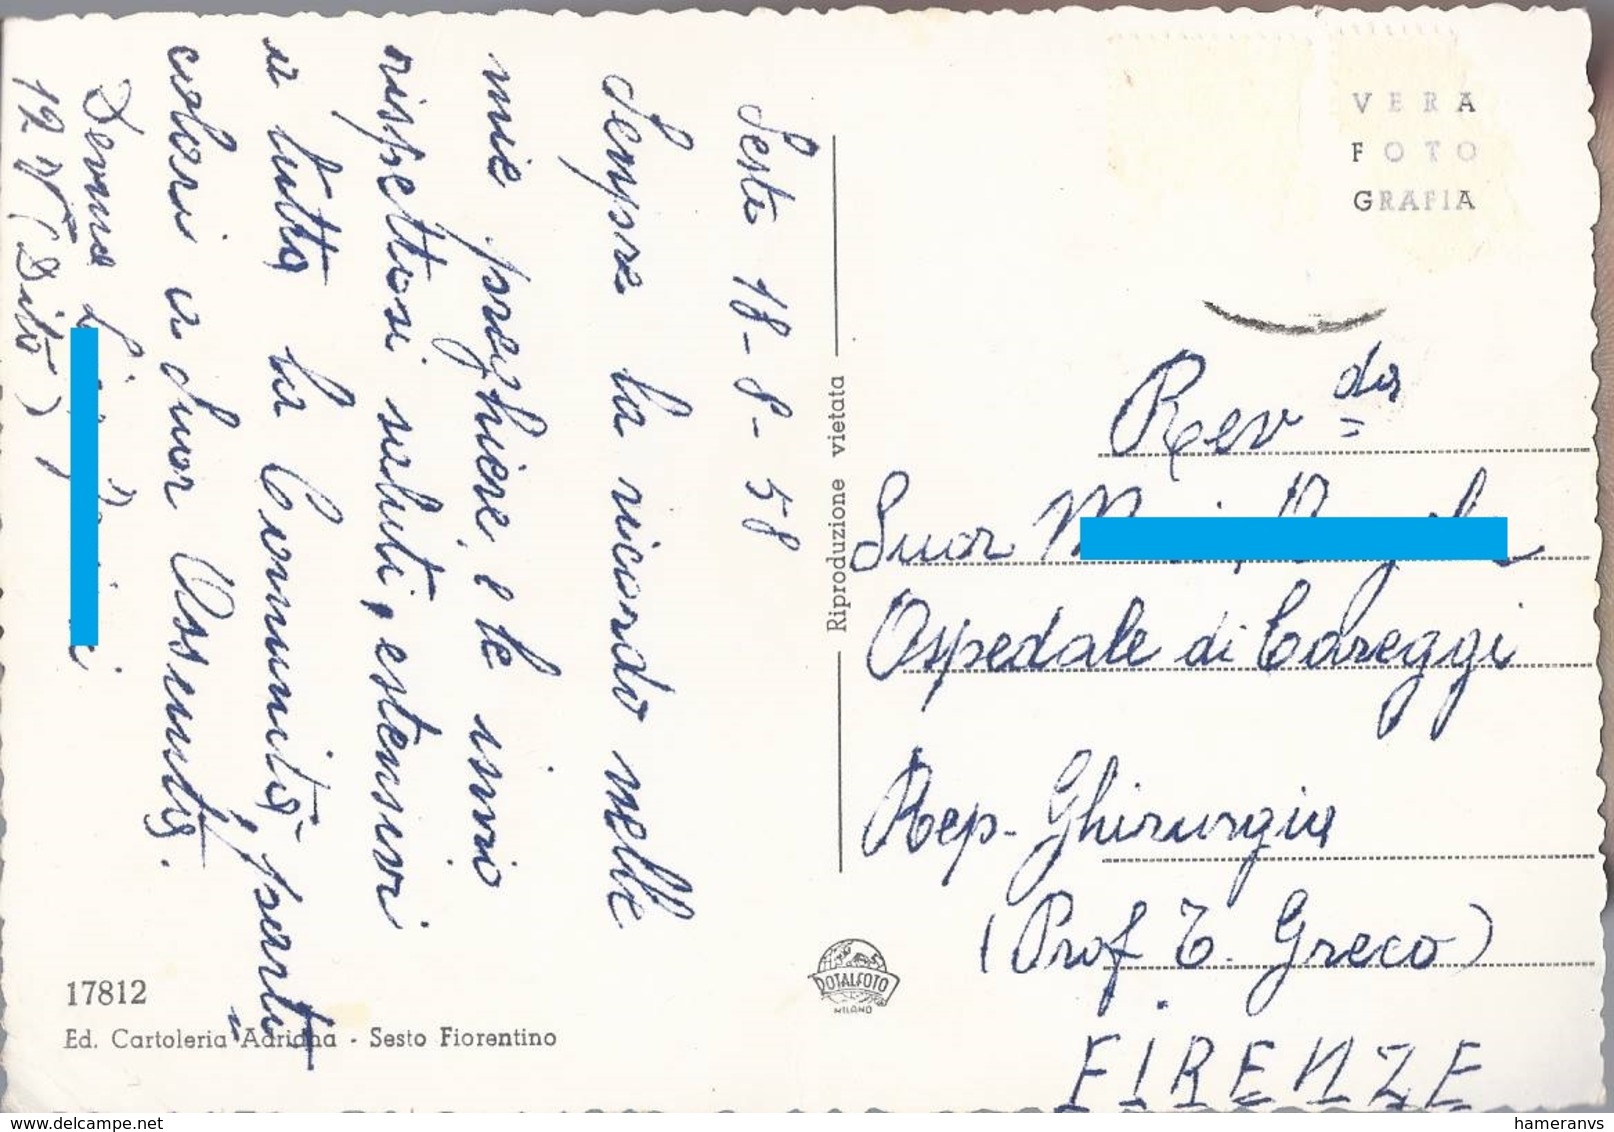 Sesto 18-8-58
Sempre la ricordo nelle
mie preghiere, e le invio
rispettosi saluti, estensivi
a tutta la Comunità, parti
colari a Suor Assunta.
12 N (Dito)
VERA
FOTO
GRAFIA
Rev da
Suor
Ospedale di Careggi
Rep. Chirurgia
(Prof T. Greco)
FIRENZE
Riproduzione vietata
DOTALFOTO
MILANO
17812
Ed. Cartoleria Adriana - Sesto Fiorentino
www.delcampe.net
hameranvs